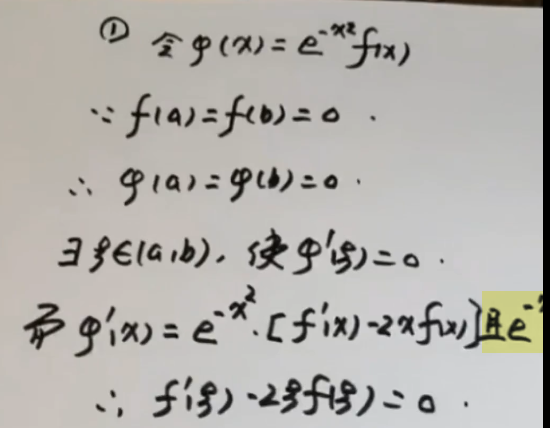 ① 令φ(x)=e^{-x²}f(x)
∵ f(a)=f(b)=0.
∴ φ(a)=φ(b)=0.
∃ξ∈(a,b), 使φ'(ξ)=0.
而φ'(x)=e^{-x²}·[f'(x)-2xf(x)]且e^-
∴ f'(ξ)-2ξf(ξ)=0.